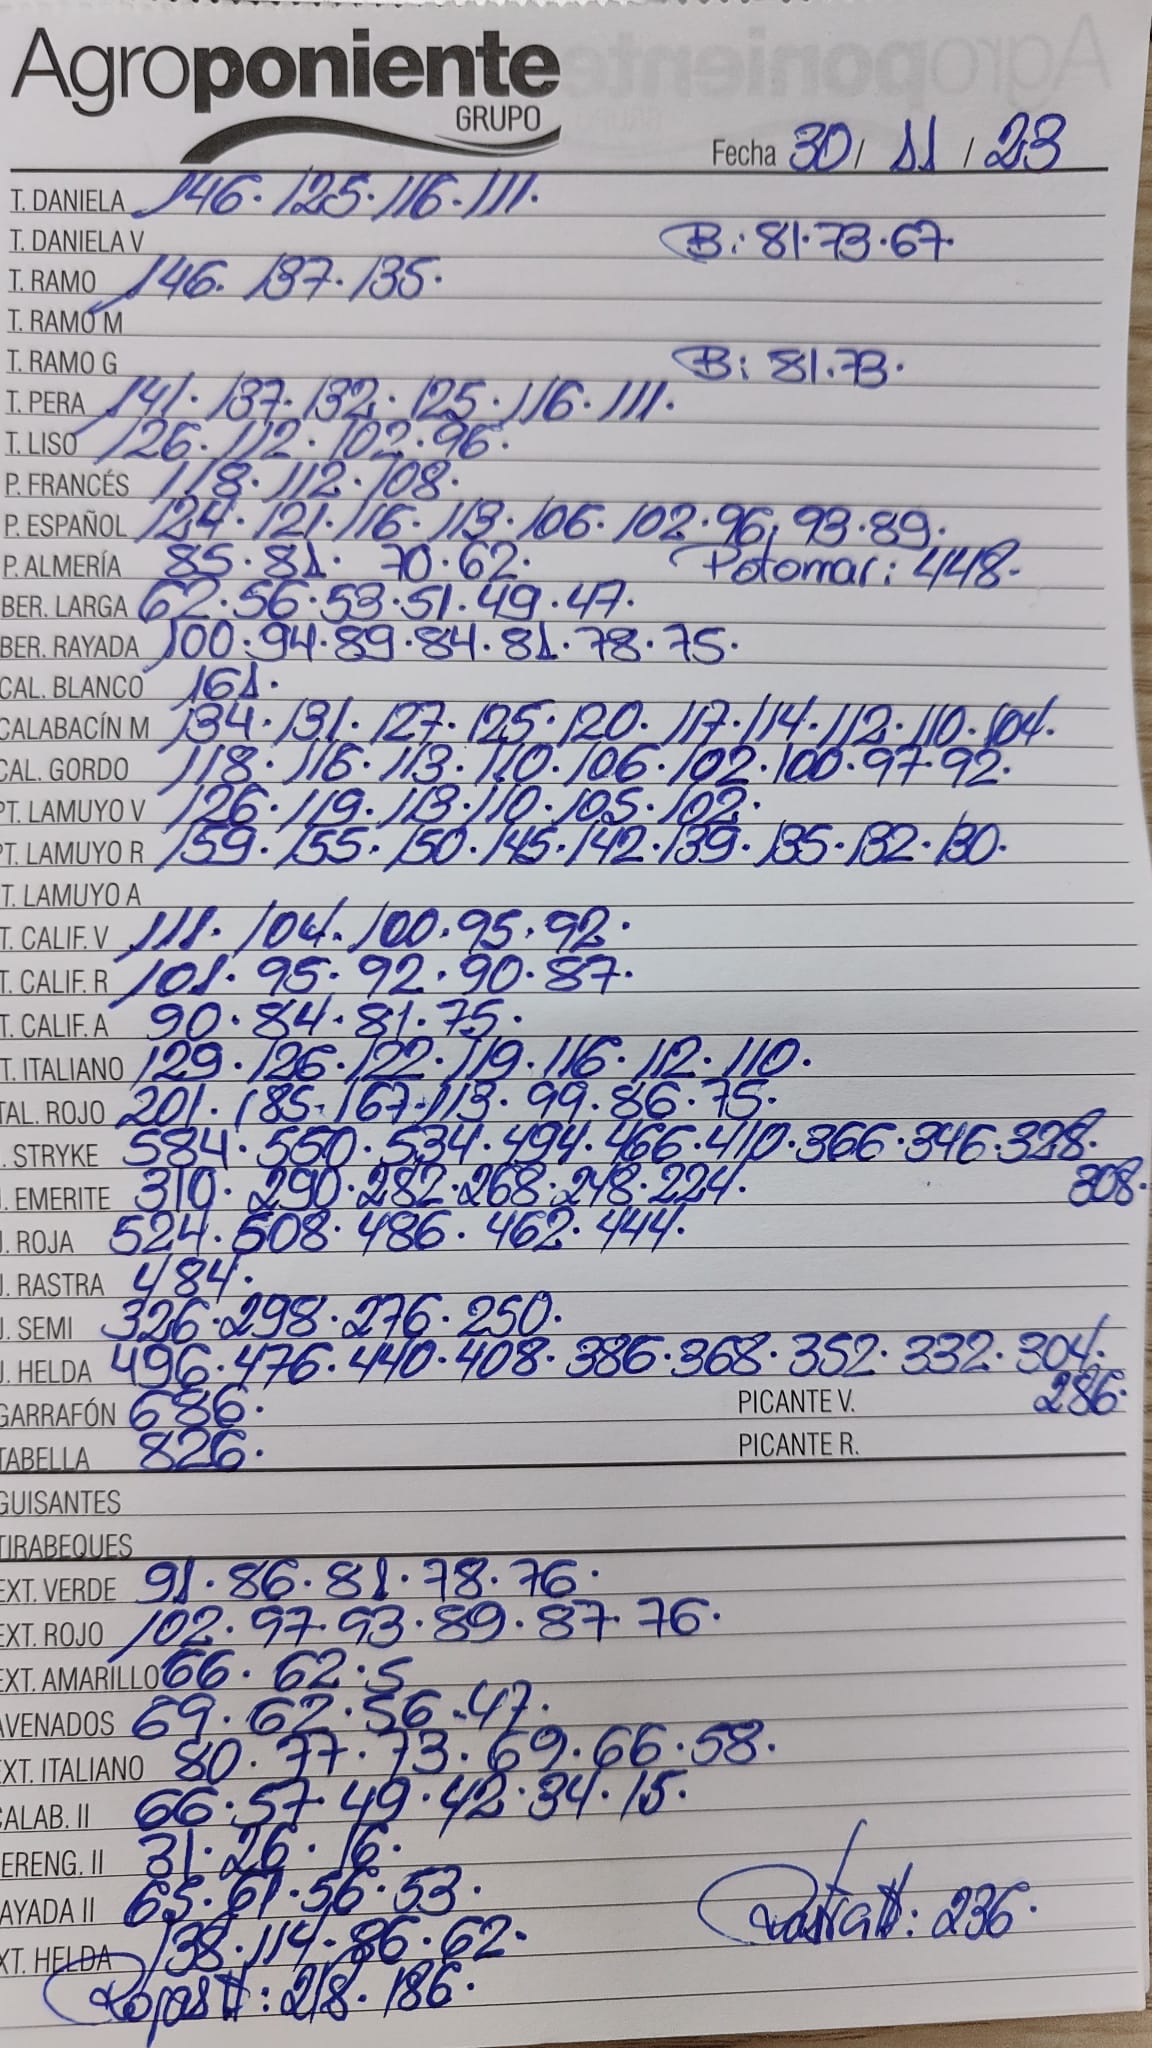 Agroponiente
GRUPO
Fecha 30 / 11 / 23
T. DANIELA 146. 125. 116. 111.
T. DANIELA V B: 81. 73. 67.
T. RAMO 146. 137. 135.
T. RAMO M
T. RAMO G B: 81. 73.
T. PERA 141. 137. 132. 125. 116. 111.
T. LISO 126. 112. 102. 96.
P. FRANCÉS 118. 112. 108.
P. ESPAÑOL 124. 121. 116. 113. 106. 102. 96. 93. 89.
P. ALMERÍA 85. 81. 70. 62. Potomar: 448.
BER. LARGA 62. 56. 53. 51. 49. 47.
BER. RAYADA 100. 94. 89. 84. 81. 78. 75.
CAL. BLANCO 161.
CALABACÍN M 134. 131. 127. 125. 120. 117. 114. 112. 110. 104.
CAL. GORDO 118. 116. 113. 110. 106. 102. 100. 97. 92.
PT. LAMUYO V 126. 119. 113. 110. 105. 102.
PT. LAMUYO R 159. 155. 150. 145. 142. 139. 135. 132. 130.
T. LAMUYO A
T. CALIF. V 111. 104. 100. 95. 92.
T. CALIF. R 101. 95. 92. 90. 87.
T. CALIF. A 90. 84. 81. 75.
T. ITALIANO 129. 126. 122. 119. 116. 112. 110.
TAL. ROJO 201. 185. 167. 113. 99. 86. 75.
. STRYKE 584. 550. 534. 494. 466. 410. 366. 346. 328.
J. EMERITE 310. 290. 282. 268. 248. 224. 308.
J. ROJA 524. 508. 486. 462. 444.
J. RASTRA 484.
J. SEMI 326. 298. 276. 250.
J. HELDA 496. 476. 440. 408. 386. 368. 352. 332. 304.
GARRAFÓN 686. PICANTE V. 286.
TABELLA 826. PICANTE R.
GUISANTES
TIRABEQUES
EXT. VERDE 91. 86. 81. 78. 76.
EXT. ROJO 102. 97. 93. 89. 87. 76.
EXT. AMARILLO 66. 62. 5
AVENADOS 69. 62. 56. 47.
EXT. ITALIANO 80. 77. 73. 69. 66. 58.
CALAB. II 66. 57. 49. 42. 34. 15.
ERENG. II 31. 26. 16.
AYADA II 65. 61. 56. 53.
XT. HELDA 138. 114. 86. 62. Rastra II: 236.
Rojas II: 218. 186.